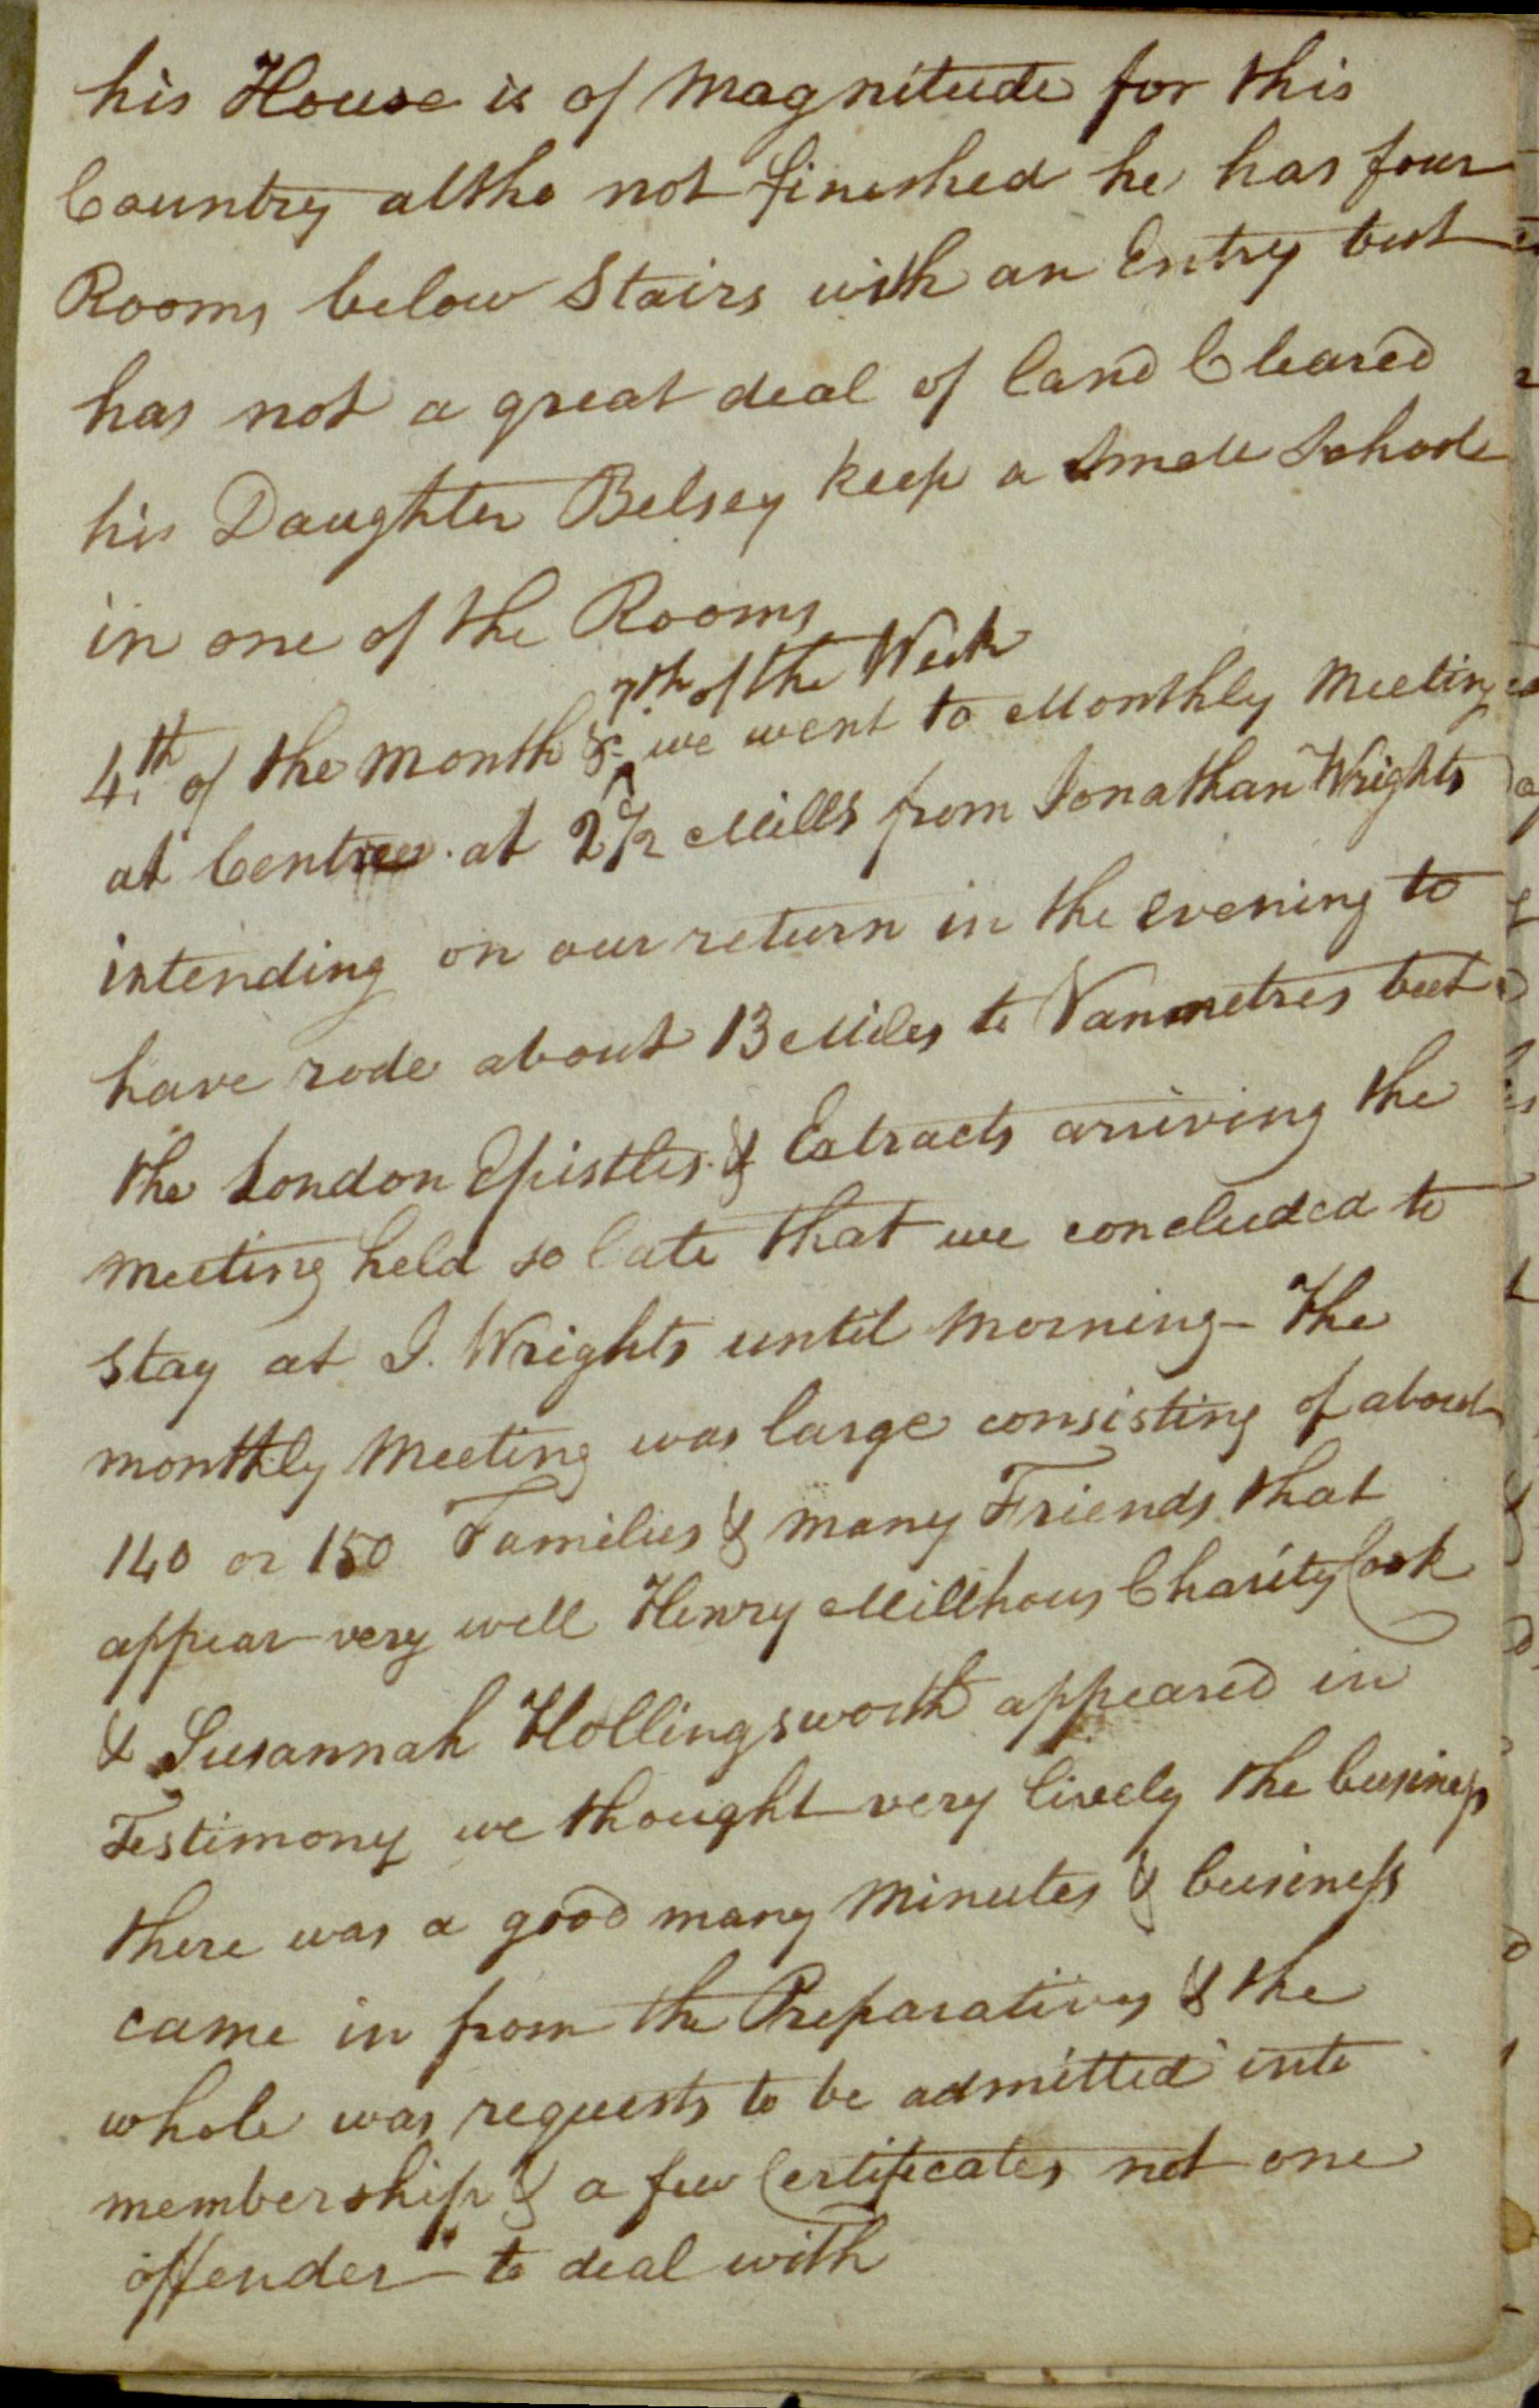 his House is of Magnitude for this
Country altho not finished he has four
Rooms below Stairs with an Entry but
has not a great deal of land Cleared
his Daughter Belsey keep a Small School
in one of the Rooms
7th of the Week
4th of the month & we went to Monthly Meeting
at Centree at 2 1/2 Mills from Jonathan Wrights
intending on our return in the evening to
have rode about 13 Miles to Vanmetres but
the London Epistles & Extracts arriving the
meeting held so late that we concluded to
stay at J. Wrights until Morning - The
monthly Meeting was large consisting of about
140 or 150 Families & many Friends that
appear very well Henry Millhous Charity Cook
& Susannah Hollingsworth appeared in
Testimony we thought very lively the business
there was a good many Minutes & business
came in from the Preparatives & the
whole was requests to be admitted into
membership & a few Certificates not one
offender to deal with